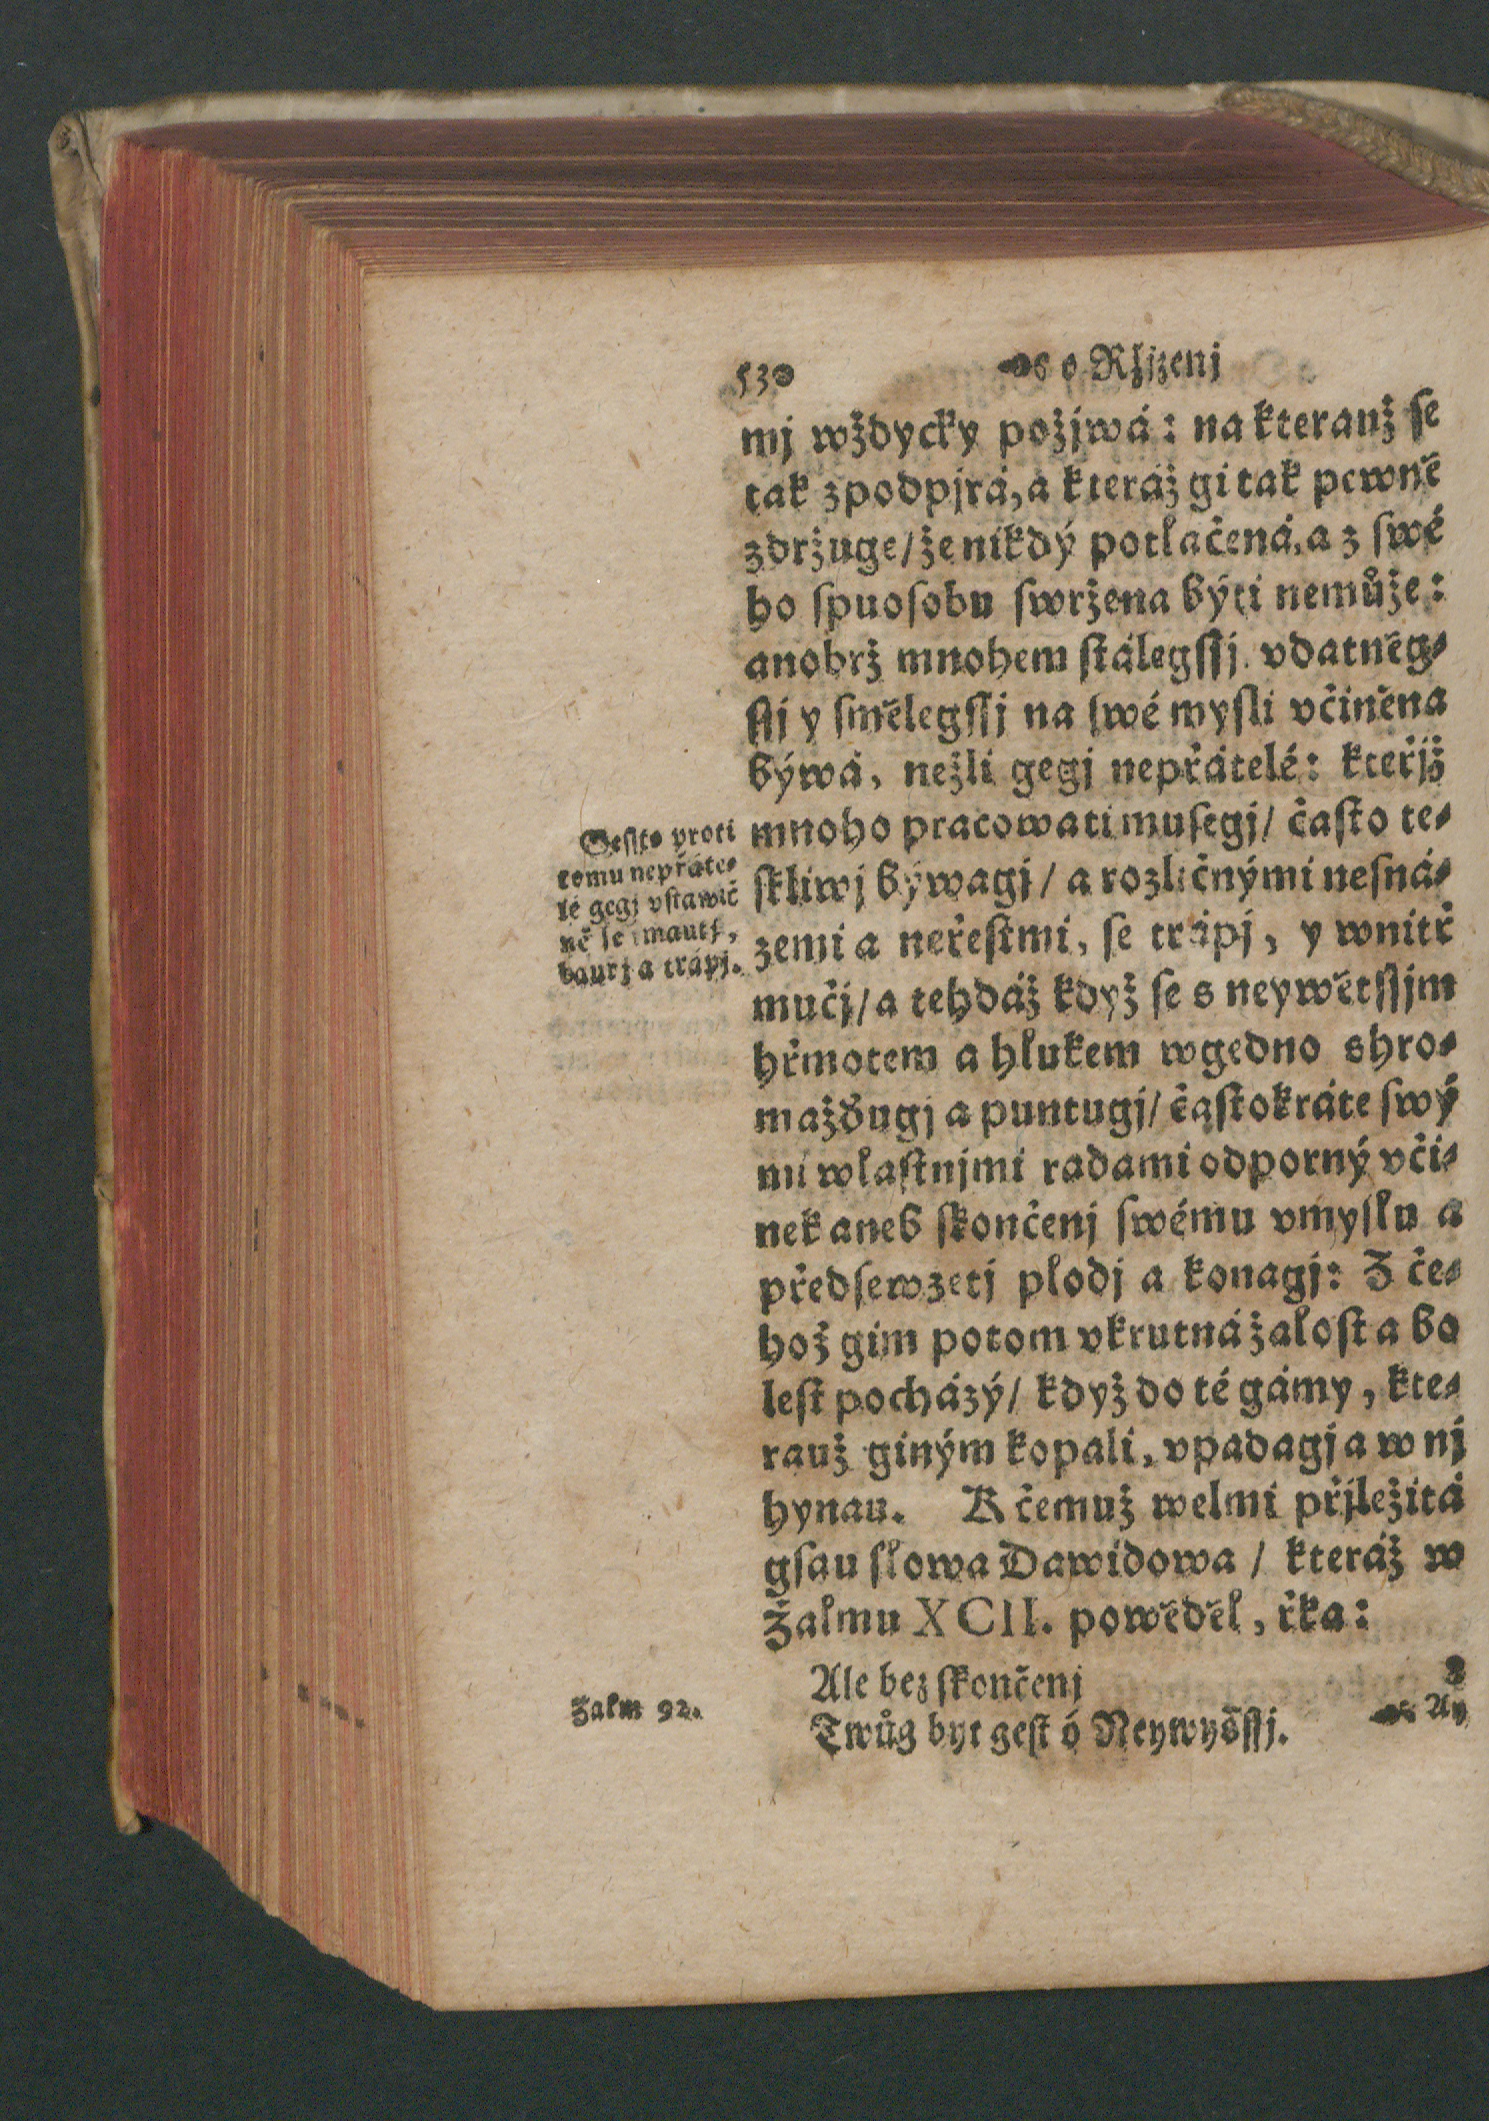 530 o Ržjzenj
mj wždycky požjwá: na kteranž se
tak zpodpjrá, a kteráž gi tak pewně
zdržuge/ že nikdý potlačená, a z swé
ho spuosobu swržena býti nemůže:
anobrž mnohem stálegssj. vdatněg⸗
ssj y smělegssj na swé mysli včiněna
býwá, nežli gegj nepřátelé: kteřjž
mnoho pracowati musegj/ často te⸗
skliwj býwagj/ a rozličnými nesná⸗
zemi a neřestmi, se trápj, y wnitř
mučj/ a tehdáž když se s neywětssjm
hřmotem a hlukem wgedno shro⸗
mažďugj a puntugj/ častokráte swý
mi wlastnjmi radami odporný vči⸗
nek aneb skončenj swému vmyslu a
předsewzetj plodj a konagj: Z če⸗
hož gim potom vkrutná žalost a bo
lest pocházý/ když do té gámy, kte⸗
rauž giným kopali, vpadagj a w nj
hynau. K čemuž welmi přjležitá
gsau slowa Dawidowa/ kteráž w
Žalmu XCII. powěděl, řka:
Ale bez skončenj
Twůg byt gest ó Neywyšssj.
Ay
proti
tomu nepřáte⸗
lé gegj vstawič
ně se rmautj,
bauřj a trápj.
Žalm 92.